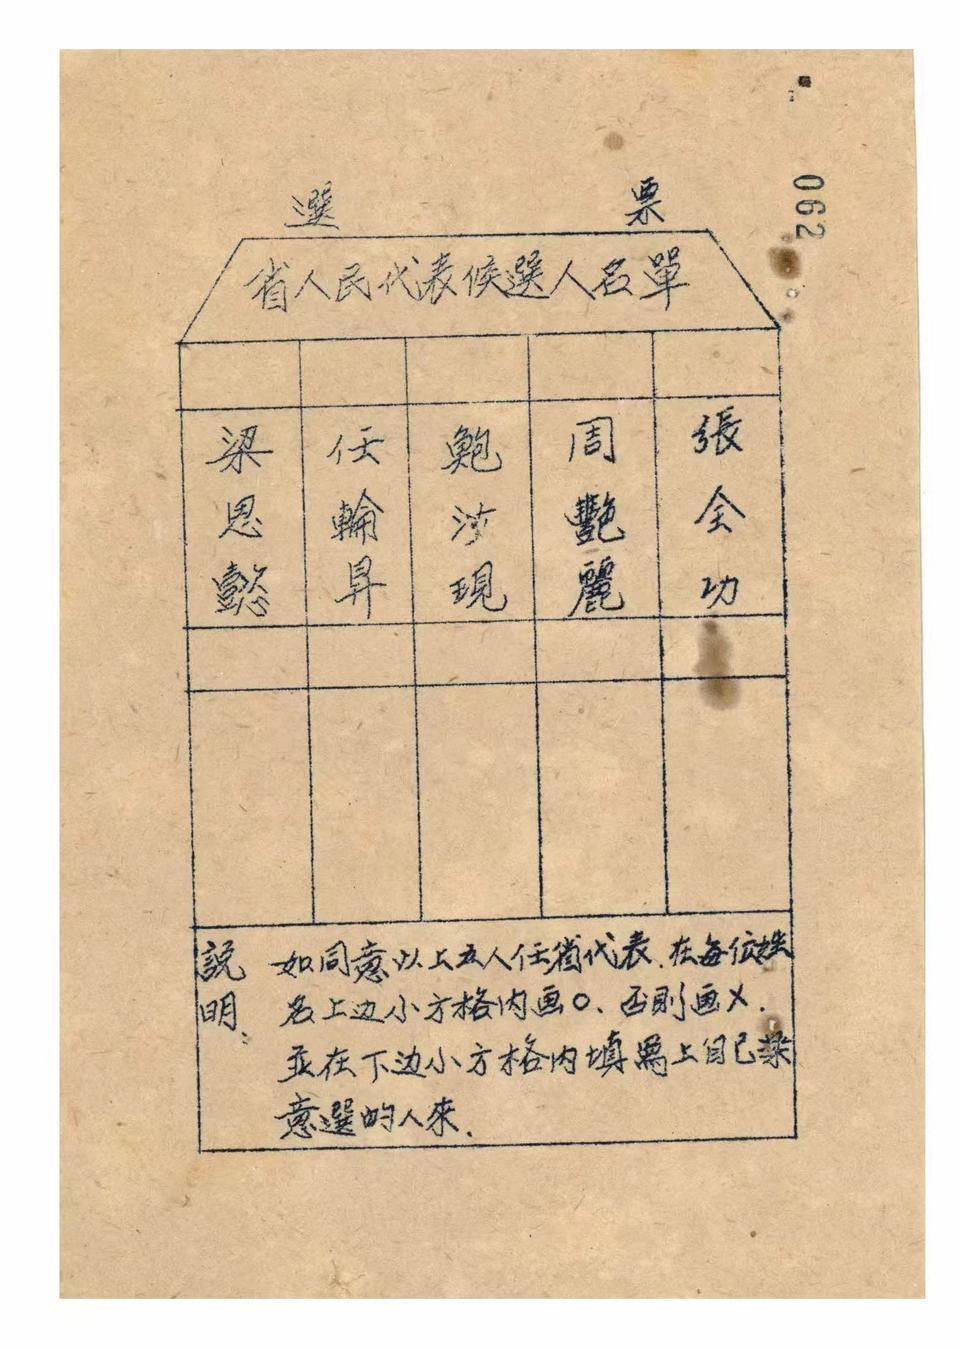 062
選 票
省人民代表候選人名單
張全功
周艷麗
鮑沙現
任輪昇
梁思懿
説明: 如同意以上五人任省代表.在每位姓
名上边小方格内画O、否則画X.
並在下边小方格内填寫上自己樂
意選的人來.